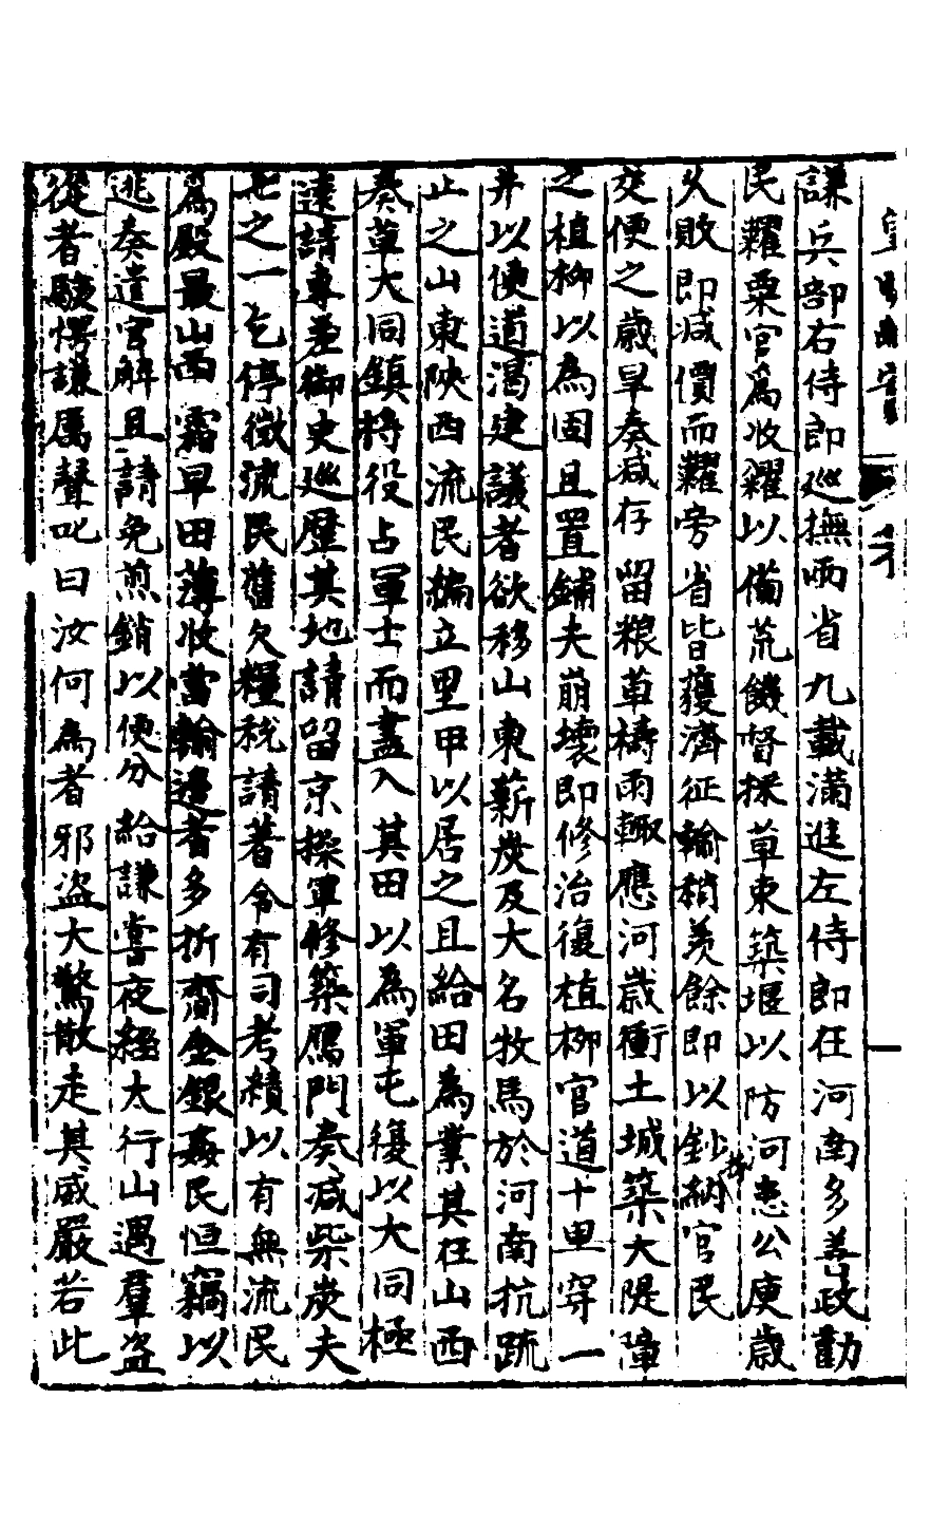 謙兵部右侍郎巡撫兩省九載滿進左侍郎在河南多善政勸
民糴粟官為收糴以備荒饑督採草束築堰以防河患公庾歲
久敗即減價而糶旁省皆獲濟征輸稍羨餘即以鈔納官民
交便之歲旱奏減存留粮草禱雨輙應河歲衝土城築大隄障
之植柳以為固且置鋪夫崩壞即修治復植柳官道十里穿一
井以便道渴建議者欲移山東薪炭及大名牧馬於河南抗疏
止之山東陝西流民編立里甲以居之且給田為業其在山西
奏革大同鎮將役占軍士而盡入其田以為軍屯復以大同極
遠請專差御史巡歷其地請留京操軍修築鴈門奏減柴炭夫
七之一乞停徵流民舊欠糧稅請著令有司考績以有無流民
為殿最山西霜早田薄收當輸邊者多折齎金銀姦民恒竊以
逃奏遣官解且請免煎銷以便分給謙嘗夜經太行山遇羣盜
從者駭愕謙厲聲叱曰汝何為者邪盜大驚散走其威嚴若此